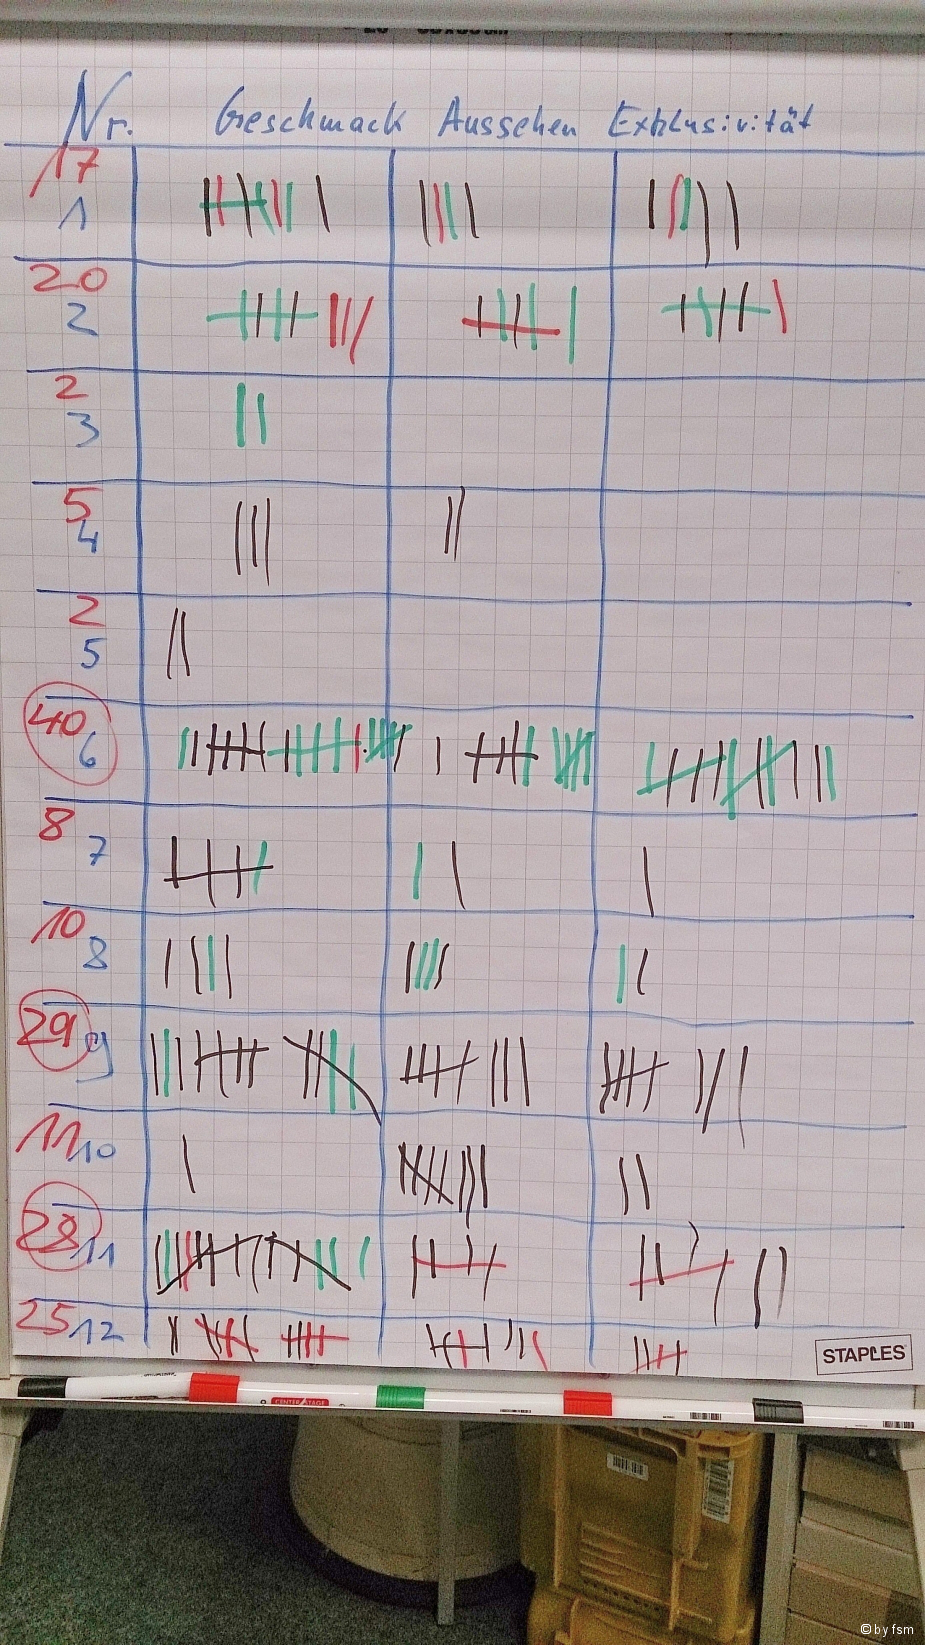 Nr. Geschmack Aussehen Exklusivität
17
1
20
2
2
3
5
4
2
5
40
6
8
7
10
8
29
9
11
10
28
11
25
12
STAPLES
CENTER STAGE
© by fsm